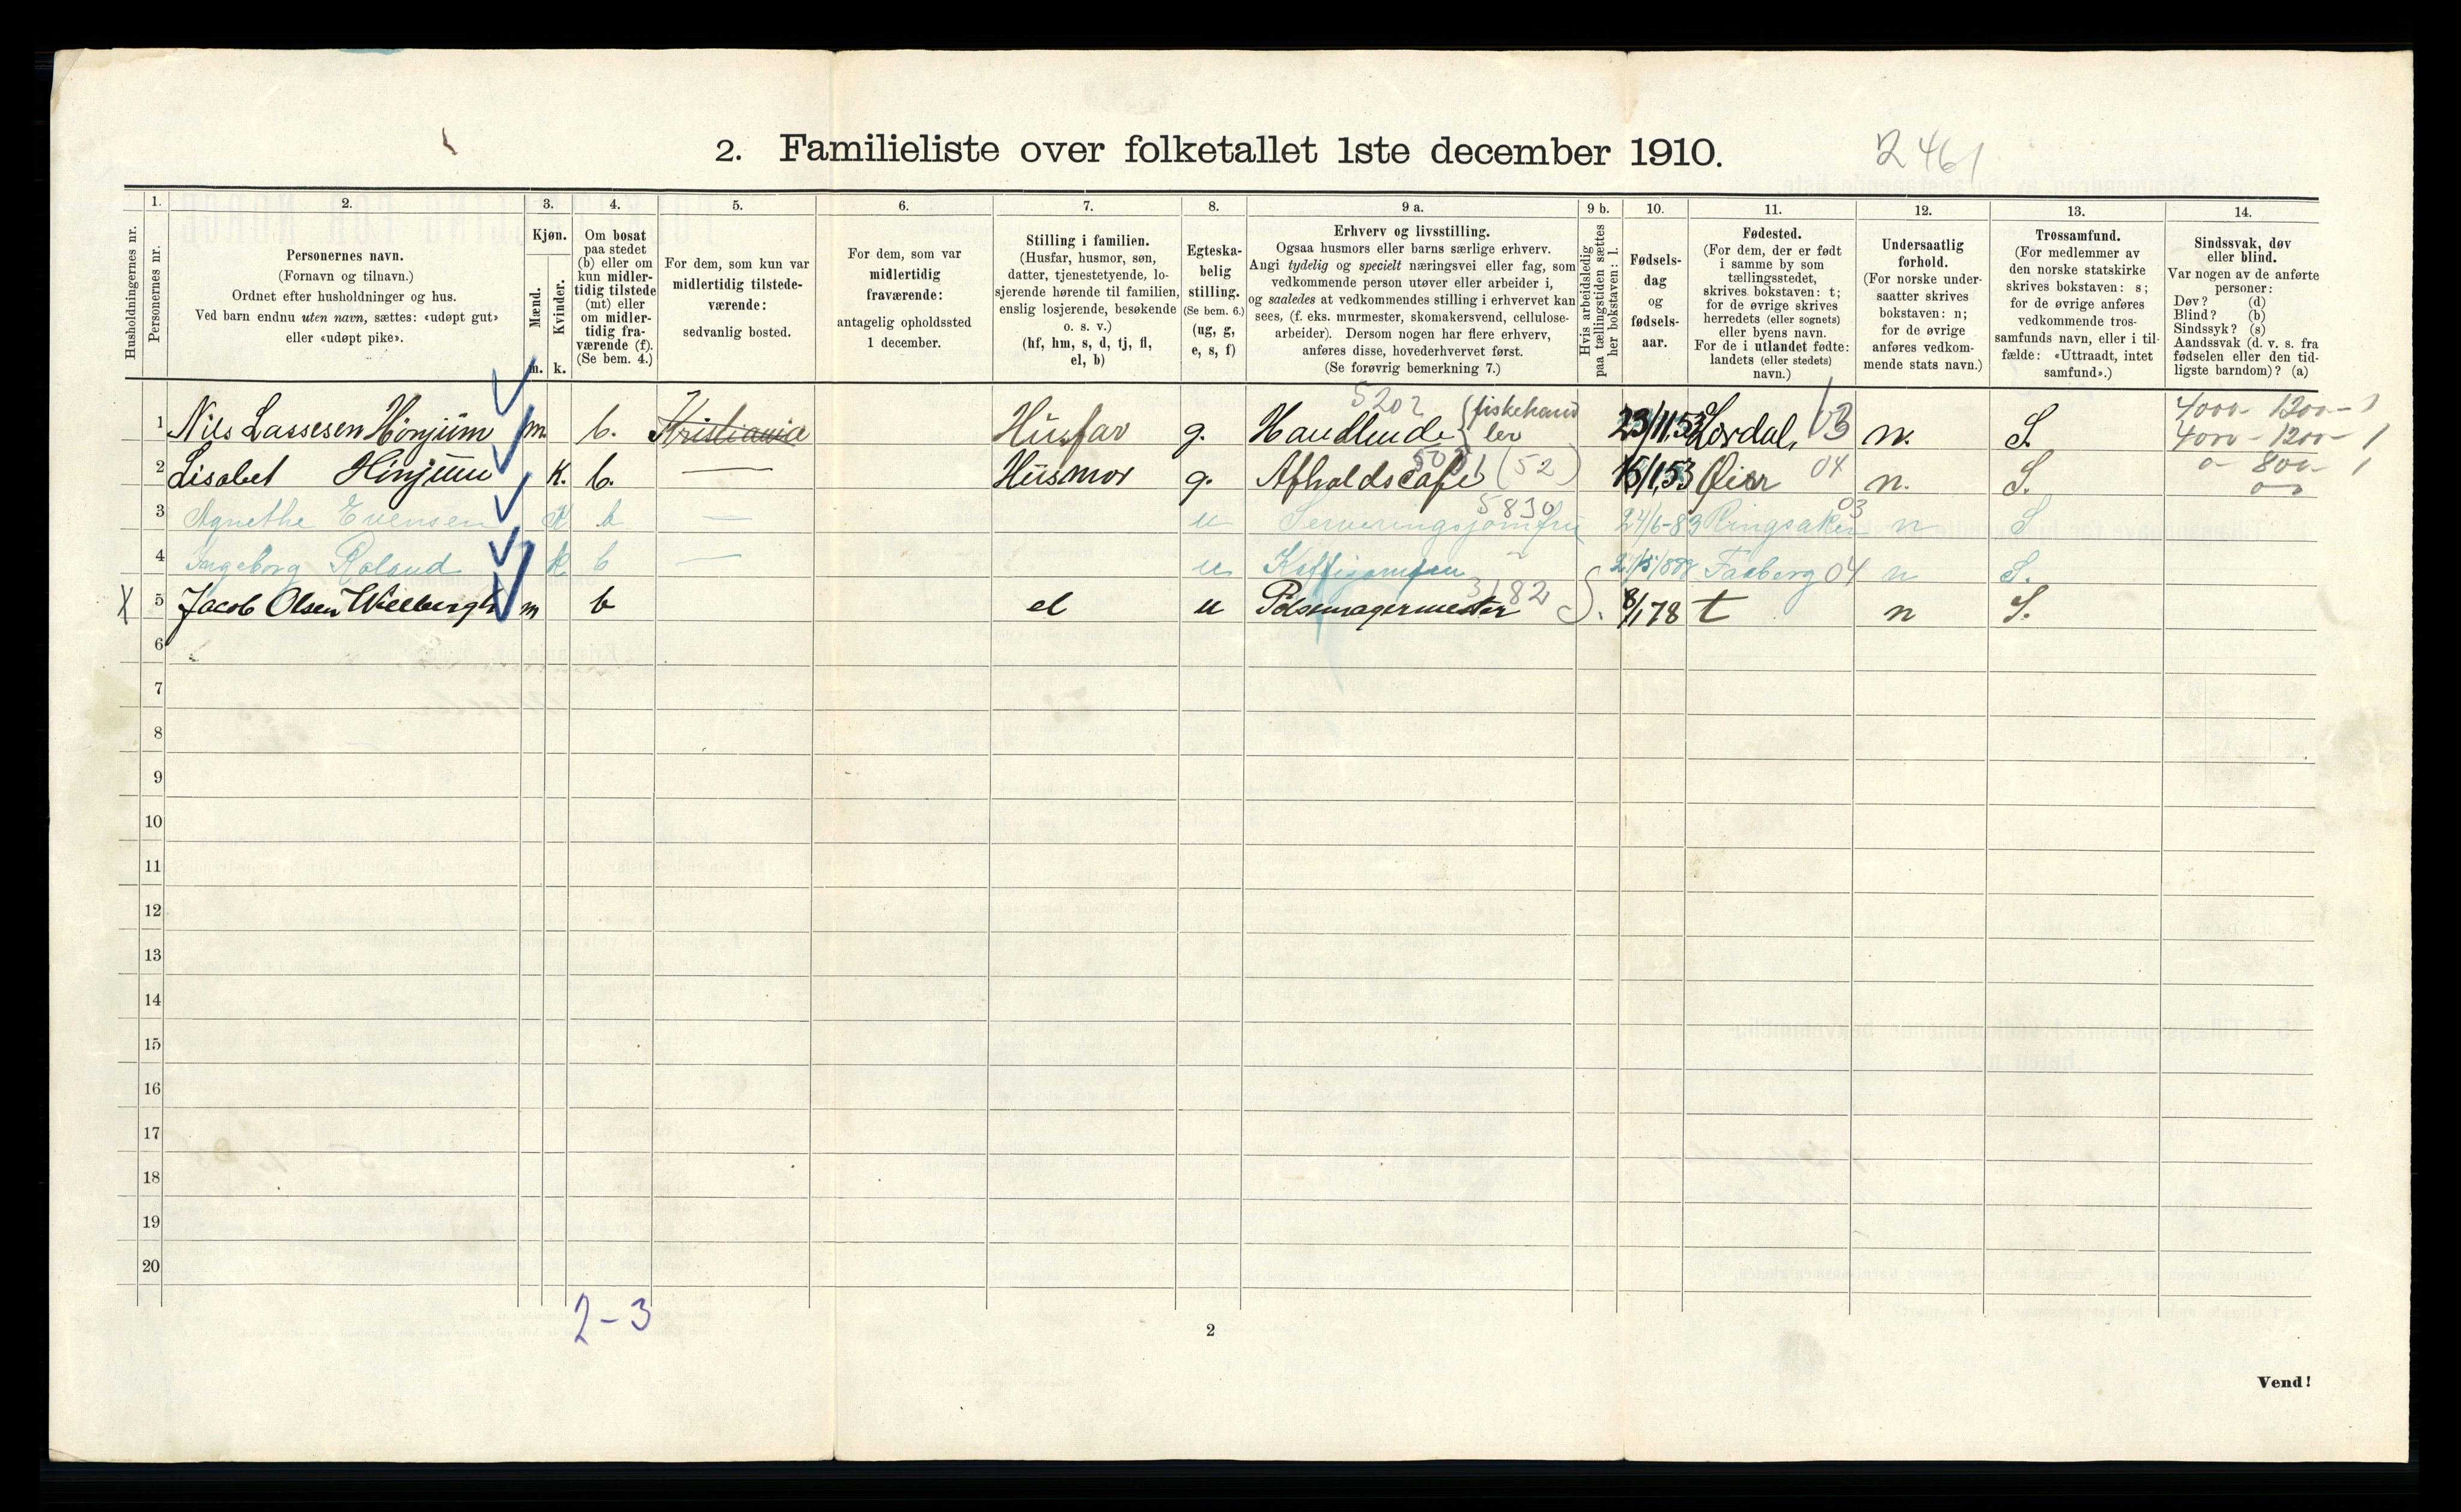 2. Familieliste over folketallet 1ste december 1910.
2461
1. 2. 3. 4. 5. 6. 7. 8. 9 a. 9 b. 10. 11. 12. 13. 14.
Husholdningernes nr.
Personernes nr.
Personernes navn.
(Fornavn og tilnavn.)
Ordnet efter husholdninger og hus.
Ved barn endnu uten navn, sættes: «udøpt gut»
eller «udøpt pike».
Kjøn.
Mænd.
Kvinder.
m. k.
Om bosat
paa stedet
(b) eller om
kun midler-
tidig tilstede
(mt) eller
om midler-
tidig fra-
værende (f).
(Se bem. 4.)
For dem, som kun var
midlertidig tilstede-
værende:
sedvanlig bosted.
For dem, som var
midlertidig
fraværende:
antagelig opholdssted
1 december.
Stilling i familien.
(Husfar, husmor, søn,
datter, tjenestetyende, lo-
sjerende hørende til familien,
enslig losjerende, besøkende
o. s. v.)
(hf, hm, s, d, tj, fl,
el, b)
Egteska-
belig
stilling.
(Se bem. 6.)
(ug, g,
e, s, f)
Erhverv og livsstilling.
Ogsaa husmors eller barns særlige erhverv.
Angi tydelig og specielt næringsvei eller fag, som
vedkommende person utøver eller arbeider i,
og saaledes at vedkommendes stilling i erhvervet kan
sees, (f. eks. murmester, skomakersvend, cellulose-
arbeider). Dersom nogen har flere erhverv,
anføres disse, hovederhvervet først.
(Se forøvrig bemerkning 7.)
Hvis arbeidsledig
paa tællingstiden sættes
her bokstaven: l.
Fødsels-
dag
og
fødsels-
aar.
Fødested.
(For dem, der er født
i samme by som
tællingsstedet,
skrives bokstaven: t;
for de øvrige skrives
herredets (eller sognets)
eller byens navn.
For de i utlandet fødte:
landets (eller stedets)
navn.)
Undersaatlig
forhold.
(For norske under-
saatter skrives
bokstaven: n;
for de øvrige
anføres vedkom-
mende stats navn.)
Trossamfund.
(For medlemmer av
den norske statskirke
skrives bokstaven: s;
for de øvrige anføres
vedkommende tros-
samfunds navn, eller i til-
fælde: «Uttraadt, intet
samfund».)
Sindssvak, døv
eller blind.
Var nogen av de anførte
personer:
Døv? (d)
Blind? (b)
Sindssyk? (s)
Aandssvak (d. v. s. fra
fødselen eller den tid-
ligste barndom)? (a)
5202 4000 - 1200 - 1
1 Nils Lassesen Hönjüm m. b. Kristiania Husfar g. Handlende (fiskehand ler 23/11,53 Lordal, 03 n. S. 4000 - 1200 - 1
2 Lisabet Hinjüm K. b. — Husmor g. Afholdscafe (52) 15/1,53 Öier 04 n. S. 0 - 800 - 1
3 Agnethe Evensen K b — u Serveringsjomfru 5830 24/6-83 Ringsaker 03 n S
4 Ingeborg Roland K. b — u Kaffijomfru Faaberg 04 n S.
X 5 Jacob Olsen m b el u Pølsemagermester 3182 S. 8/1 78 t n S.
6
7
8
9
10
11
12
13
14
15
16
17
18
19
20
2-3
2
Vend!